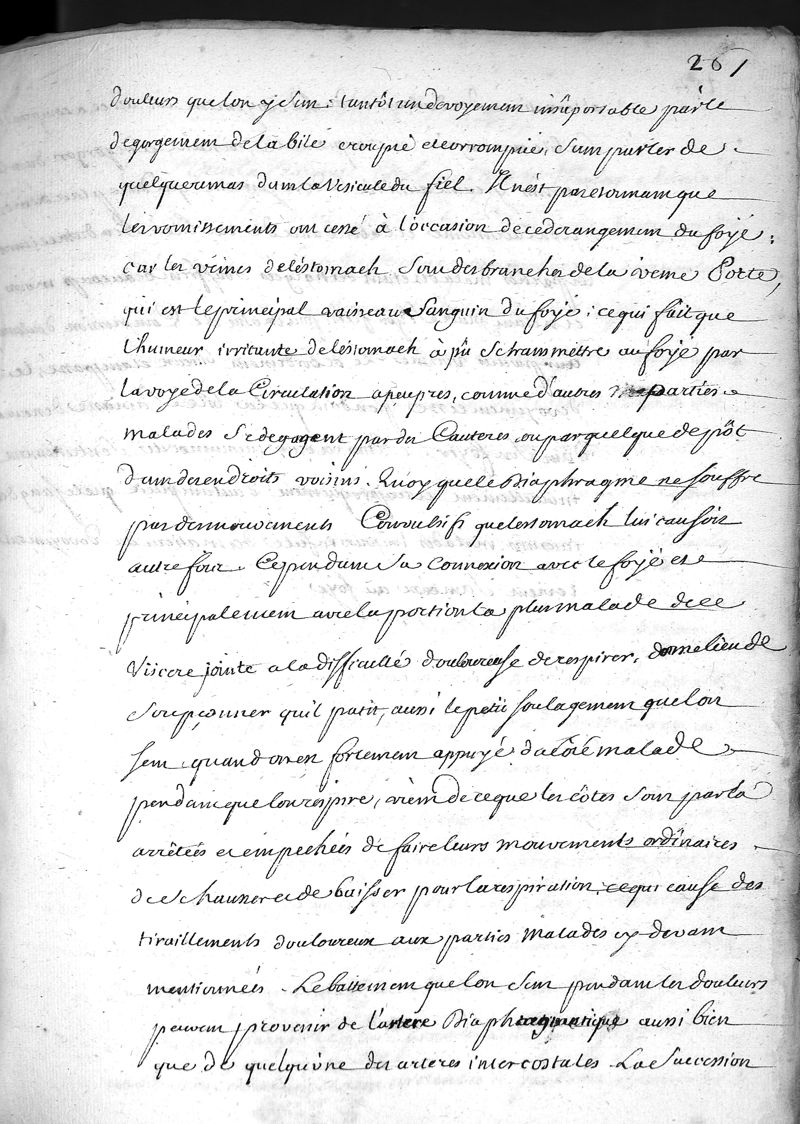 267
douleurs quelon y sent : tantôt un devoyement insuportable par le
degorgement de la bile croupie et corrompüe, sans parler de
quelque amas dans la Vesicule du fiel. Il n'est pas etonnant que
les vomissements ont cessé à l'occasion de ce derangement du foÿe :
car les veines de léstomach sont des branches de la veine Porte,
qui est le principal vaisseau Sanguin du foÿe : ce qui fait que
l'humeur irritante de léstomach à pû se trammettre au foÿe par
la voye de la Circulation a peu pres, comme d'autres parties
malades se degagent par des Cauteres ou par quelque depôt
dans des endroits voisins. Quoy que le Diaphragme ne souffre
pas des mouvements Convulsifs que lestomach lui causoit
autrefois. Cependant sa connexion avec le foÿe et
principalement avec la portion la plus malade de ce
Viscere jointe a la difficulté douloureuse de respirer, donne lieu de
soupçonner qu'il patit, aussi le petit soulagement quelon
sent quand on en fortement appuyé du côté malade
pendant que lon respire, vient de ce que les côtes sont par là
arrêtées et empechées de faire leurs mouvements ordinaires
de se hausser et de baisser pour la respiration, ce qui cause des
tiraillements douloureux aux parties malades cy devant
mentionnées. Le battement quelon sent pendant les douleurs
peuvent provenir de l'artere Diaphragmatique aussi bien
que de quelqu'une des arteres intercostales. La Succession